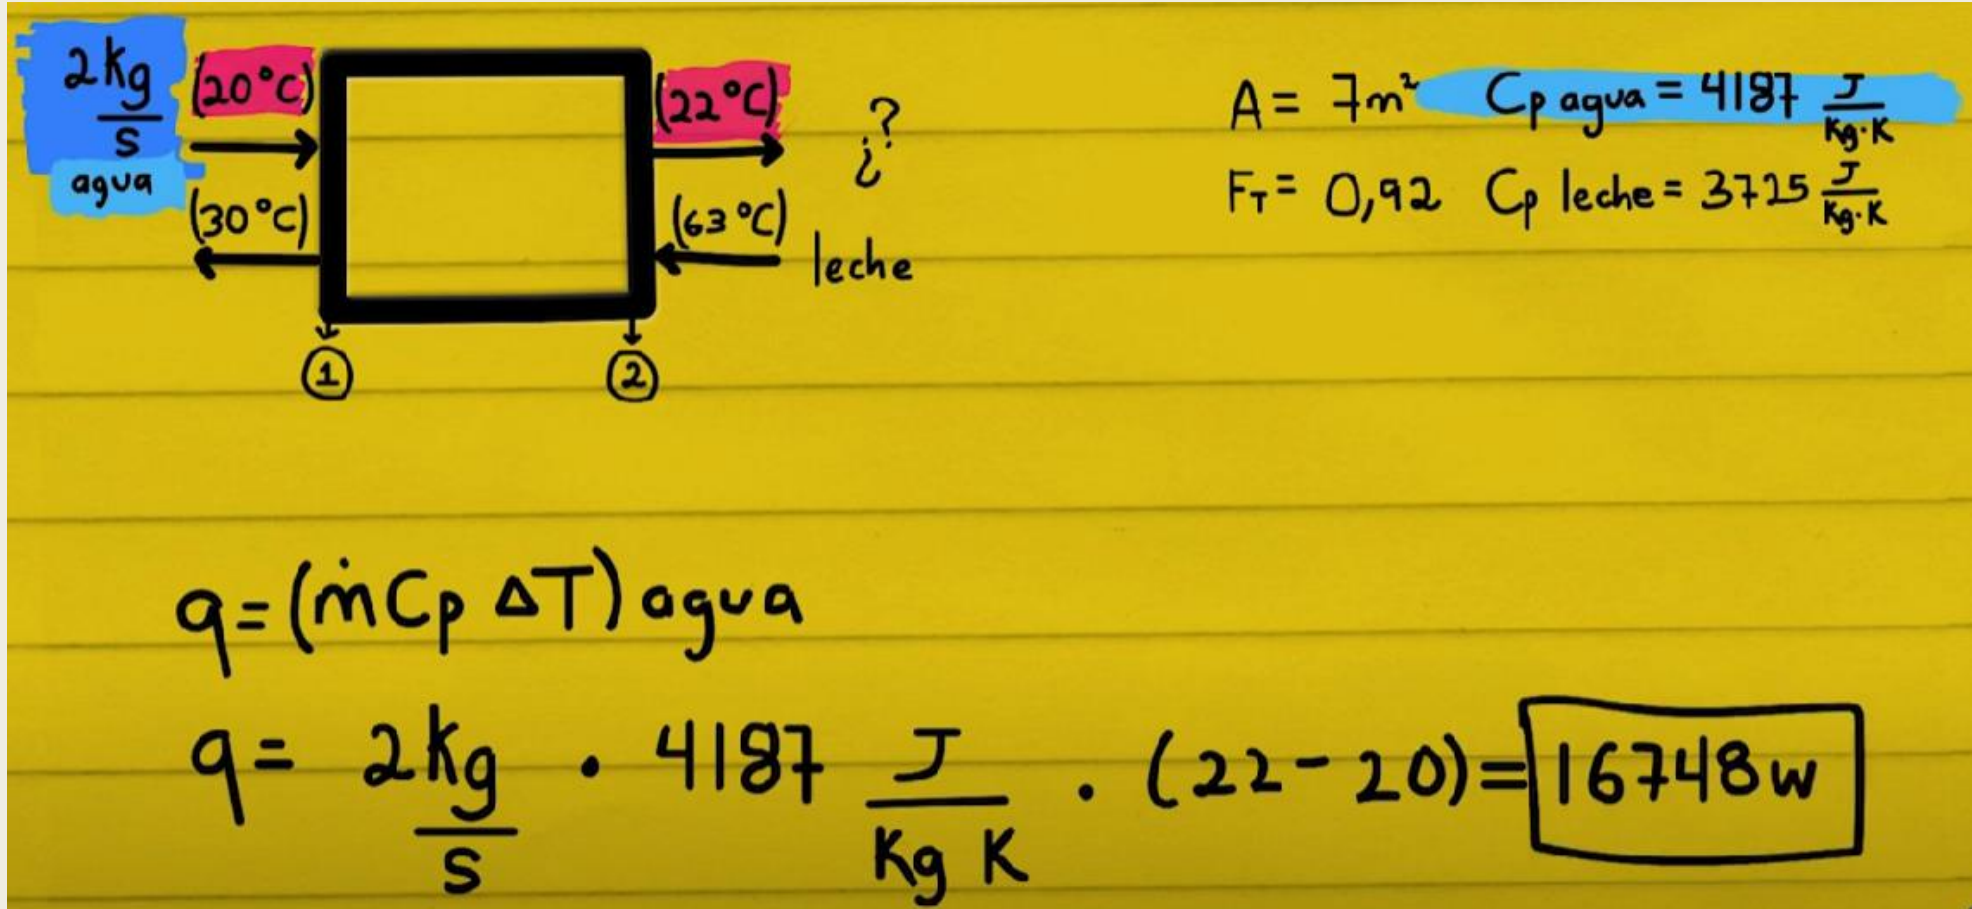 2kg/s (20°C) (22°C) ¿?
agua
(30°C) (63°C) leche
1 2
A = 7m² Cp agua = 4187 J/Kg·K
FT = 0,92 Cp leche = 3725 J/Kg·K
q = (ṁCp ΔT) agua
q = 2kg/s · 4187 J/Kg K · (22-20) = 16748w